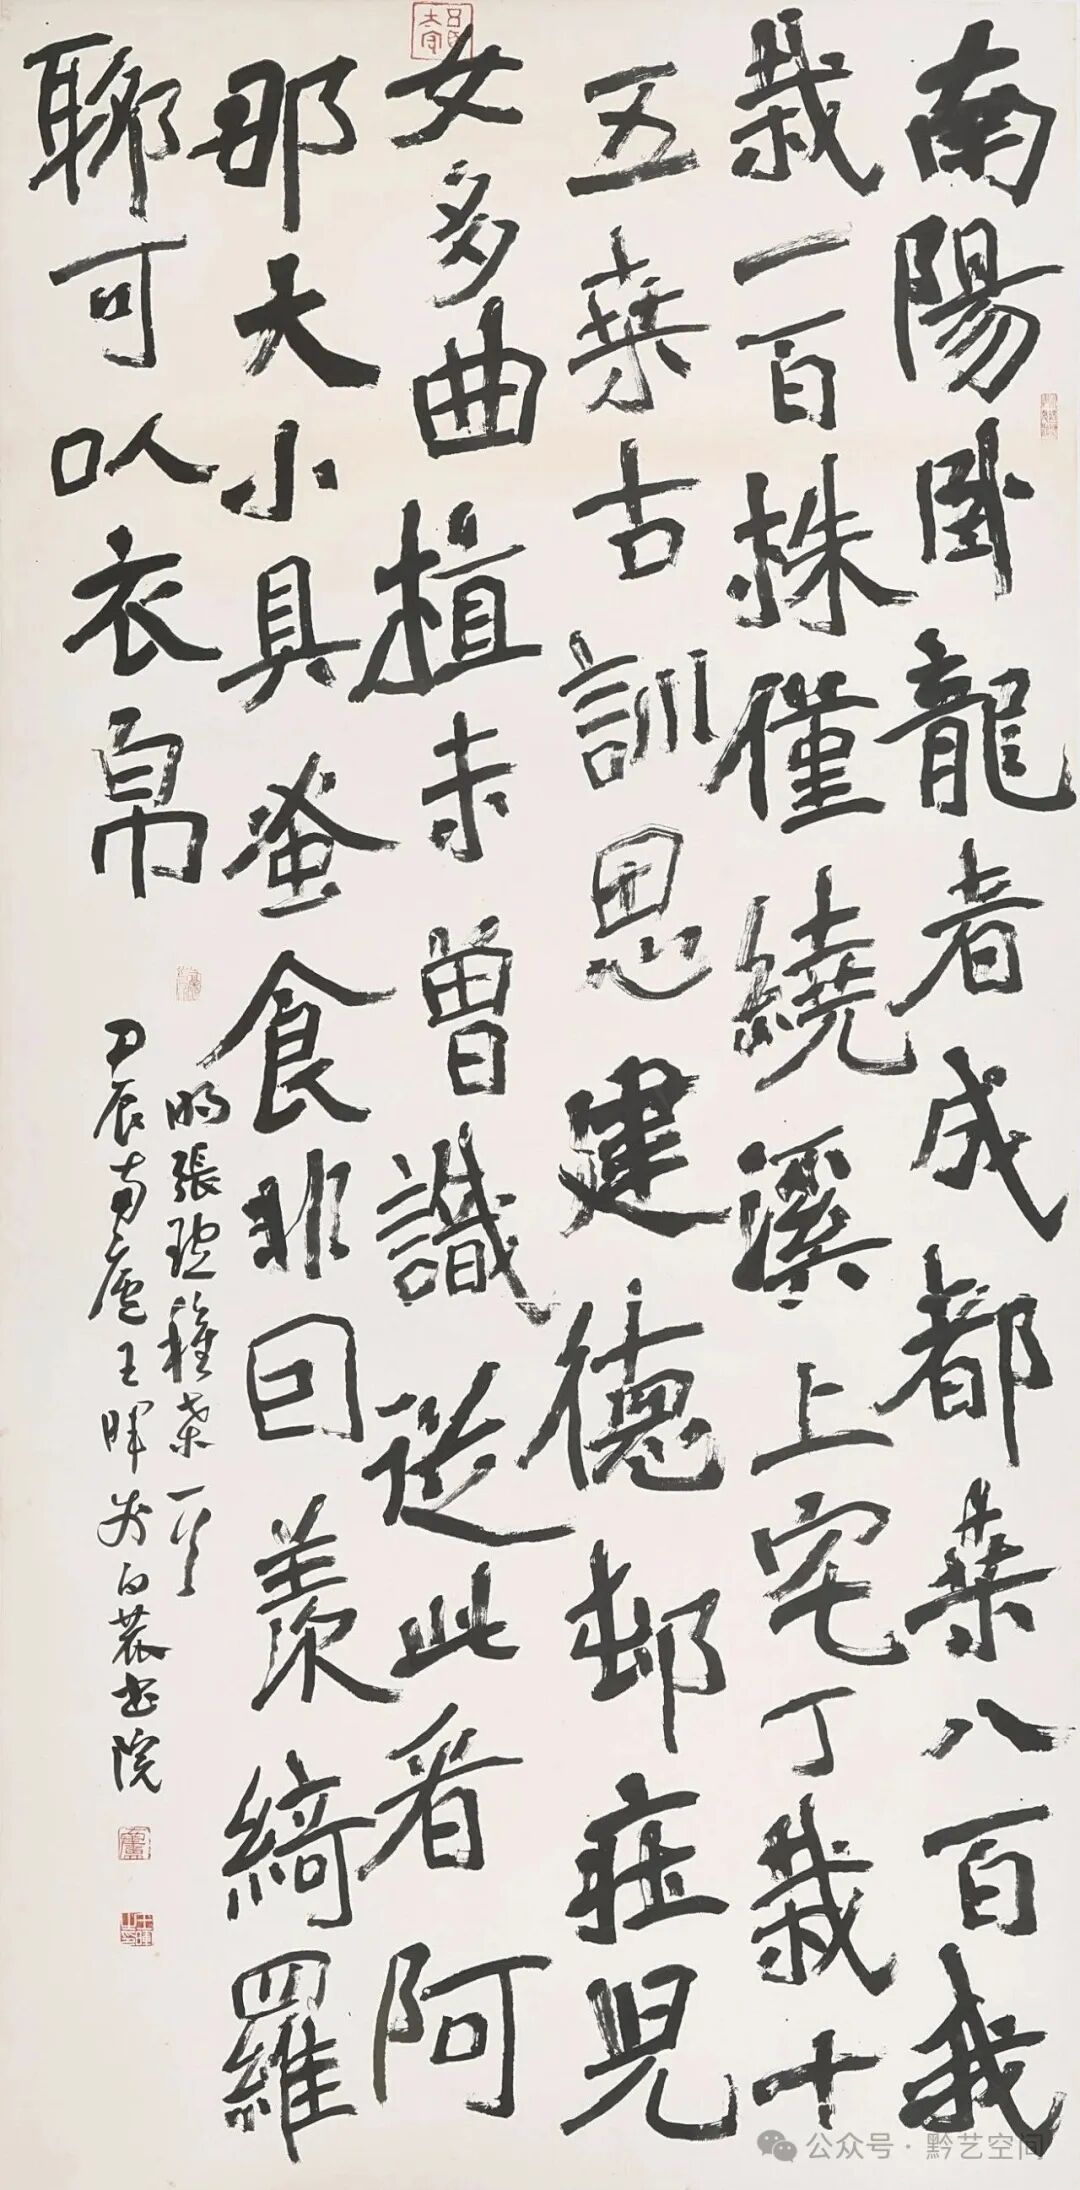 南陽卧龍者成都桑八百我
栽一百株僅繞溪上宅丁栽十
五桑古訓思建德邨莊兒
女多曲植未曾識從此看阿
那大小具蚕食非因羡綺羅
聊可以衣帛
明張種桑一首
甲辰南廬王暉於白農書院
公众号·黔艺空间